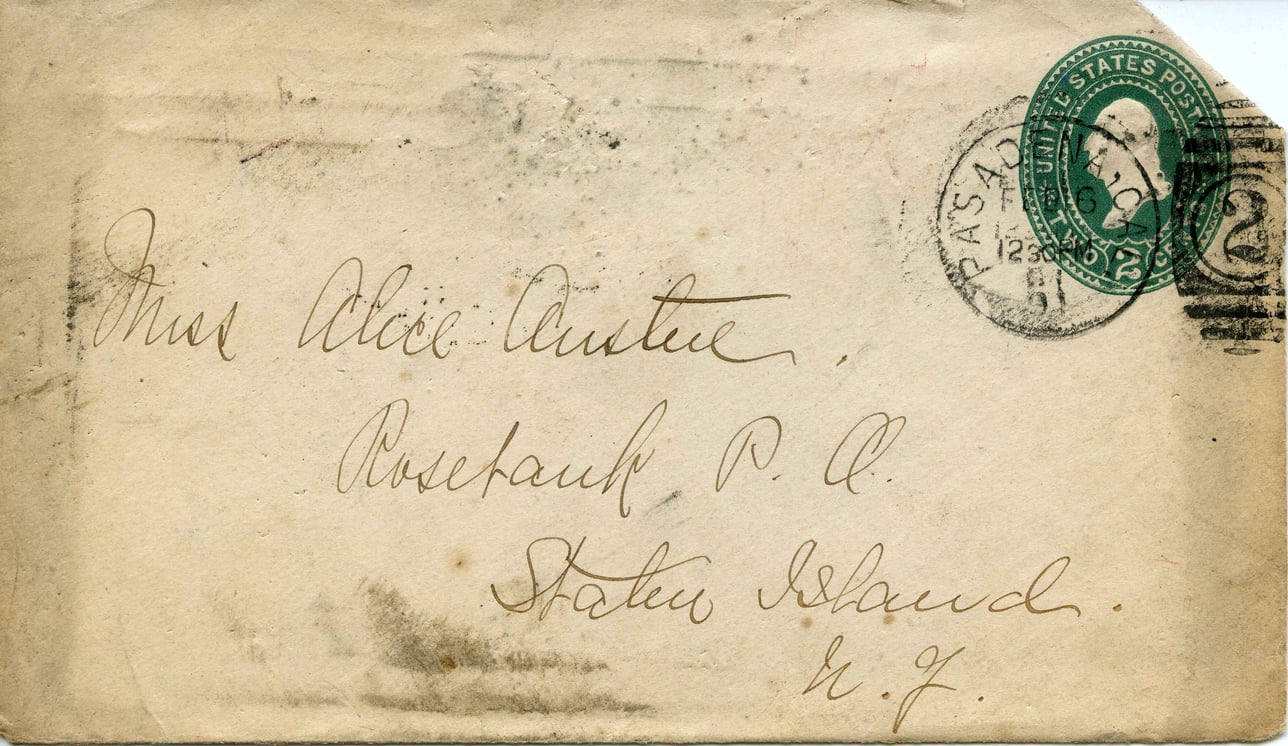 UNITED STATES POSTAGE
TWO 2 CENTS
PASADENA, CAL.
FEB 6
1230PM
91
2
Miss Alice Austen.
Rosebank P. O.
Staten Island.
N. Y.